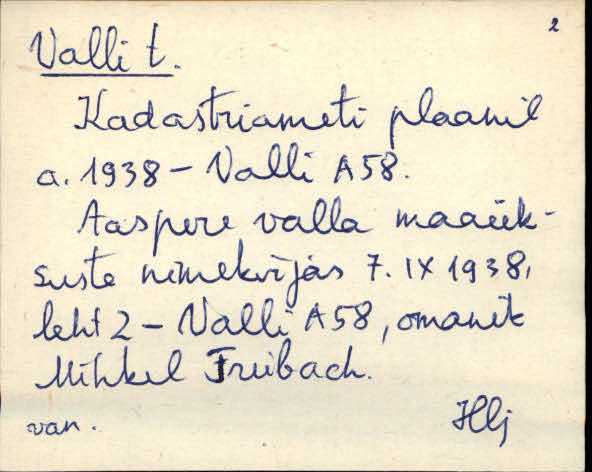 2
Valli t.
Kadastriameti plaanil
a. 1938 - Valli A58.
Aaspere valla maaük-
suste nimekirjas 7. IX 1938,
leht 2 - Valli A58, omanik
Mihkel Freibach.
van.